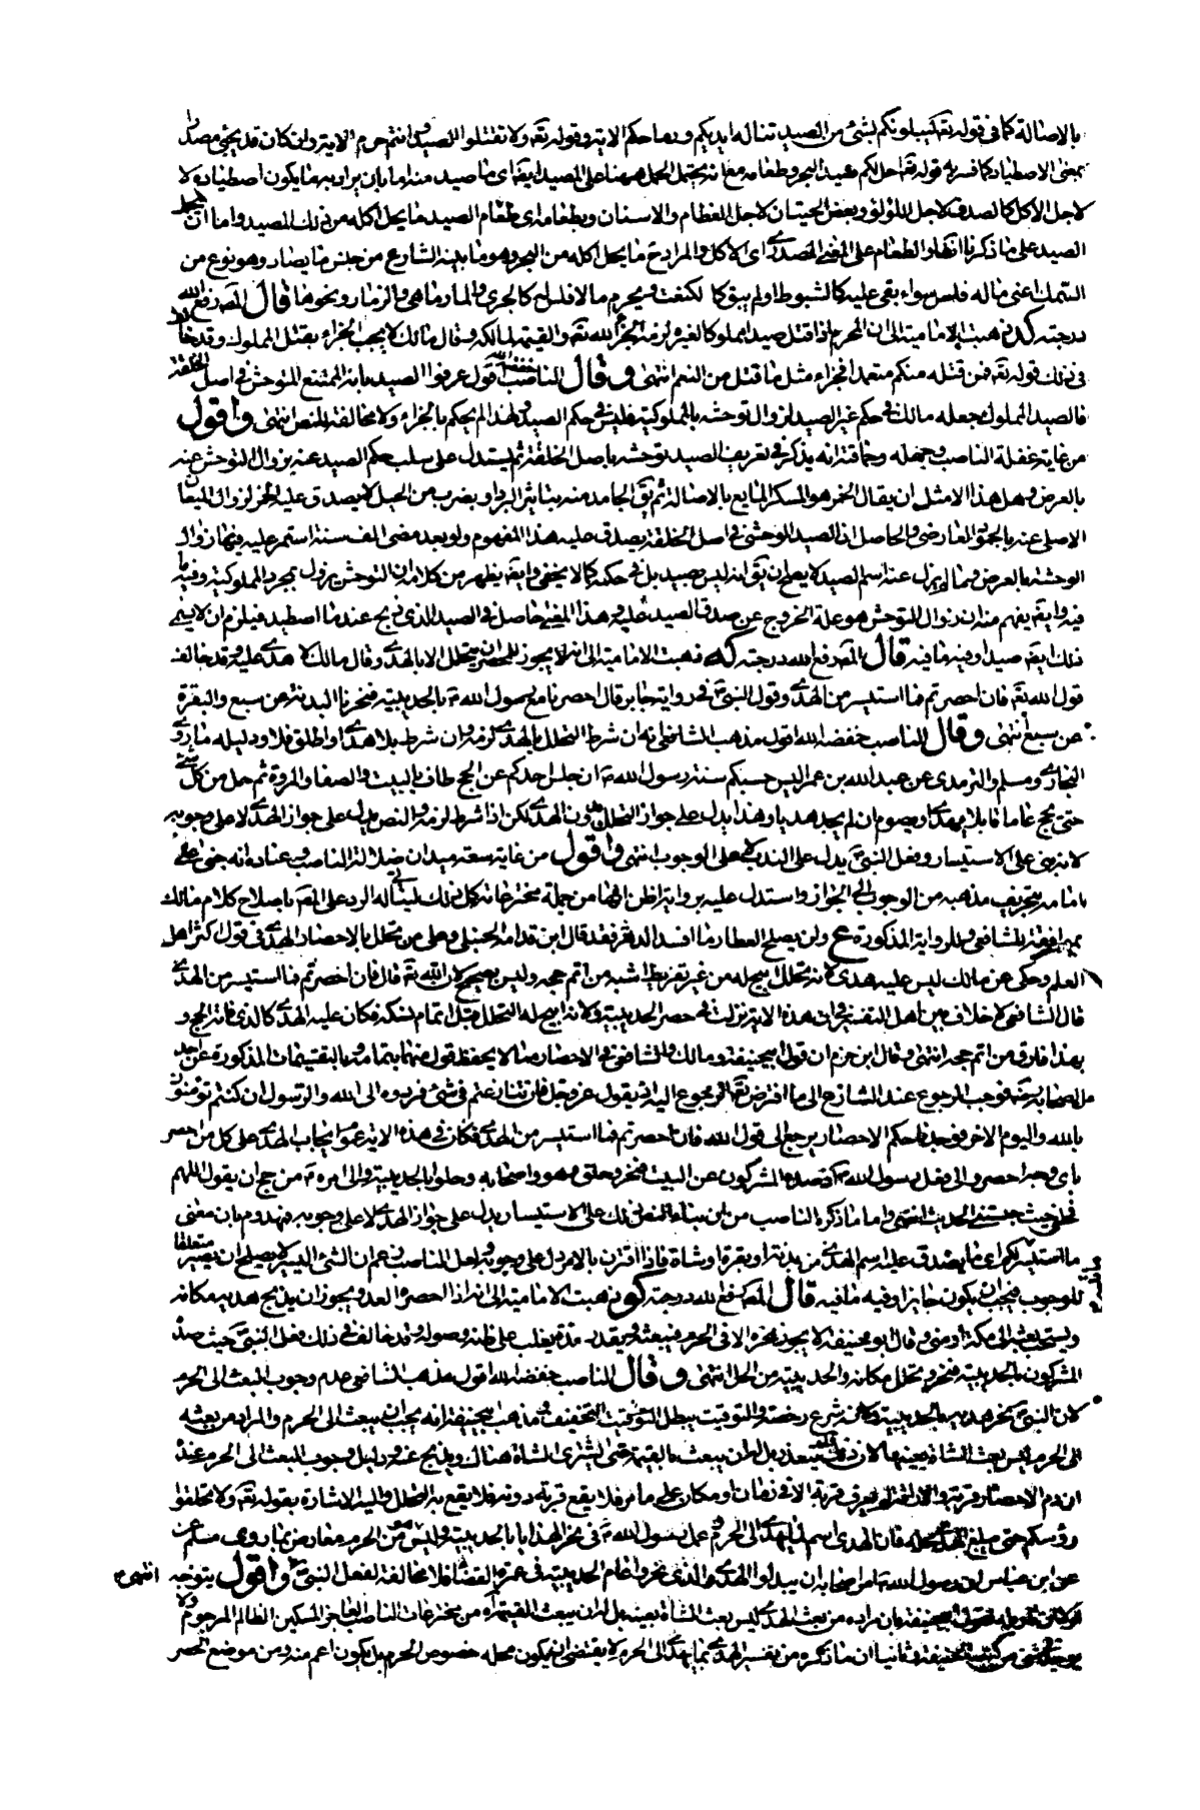 بالاصالة كما في قوله تعه ليبلونكم بشئ من الصيد تناله ايديكم ورماحكم الاية وقوله تعه ولا تقتلوا الصيد وانتم حرم الاية وان كان قد يجئ مصدرا
بمعنى الاصطياد كما فسر به قوله تعه احل لكم صيد البحر وطعامه مع انه يحتمل الحمل ههنا على المصيد ايضه اى ما صيد منه اما بان يراد به ما يكون اصطياده لا
لاجل الاكل كالصدف لاجل اللؤلؤ وبعض الحيتان لاجل العظام والاسنان وبطعامه اى طعام الصيد ما يحل اكله من ذلك المصيد واما ان يحمل
الصيد على ما ذكرنا والطعام على المعنى المصدرى اى الاكل والمراد ح ما يحل اكله من البحر وهو ما بينه الشارع من جنس ما يصاد وهو نوع من
السمك اعنى ماله فلس سواء بقى عليه كالشبوط او لم يبق كالكنعت ويحرم ما لا فلس له كالجرى والمارماهى والزمار ونحوها قال المصه رفع الله
درجته كد ذهبت الامامية الى ان المحرم اذا قتل صيدا مملوكا لغيره لزمه الجزاء لله تعه والقيمة لمالكه وقال مالك لا يجب الجزاء بقتل المملوك وقد خالف
في ذلك قوله تعه فمن قتله منكم متعمدا فجزاء مثل ما قتل من النعم انتهى وقال الناصب خفضه الله اقول عرفوا الصيد بانه الممتنع المتوحش في اصل الخلقة
فالصيد المملوك جعله مالك في حكم غير الصيد لزوال توحشه بالمملوكية فليس في حكم الصيد ولهذا لم يحكم بالجزاء ولا مخالفة للنص انتهى واقول
من غاية غفلة الناصب وجهله وحماقته انه يذكر في تعريف الصيد توحشه باصل الخلقة ثم يستدل على سلب حكم الصيد عنه بزوال التوحش عنه
بالعرض وهل هذا الا مثل ان يقال الخمر هو المسكر المايع بالاصالة ثم يقه الجامد منه بتاثير البرد او بضرب من الحيل لا يصدق عليه الخمر لزوال الميعان
الاصلى عنه بالجمود العارضى والحاصل ان الصيد الوحشى في اصل الخلقة يصدق عليه هذا المفهوم ولو بعد مضى الف سنة استمر عليه فيها زوال
الوحشة بالعرض وما لم يزل عنه اسم الصيد لا يصح ان يقه انه ليس بصيد بل في حكمه كما لا يخفى وايضه يظهر من كلامه ان التوحش يزول بمجرد المملوكية وفيه ما
فيه وايضه يفهم منه ان زوال التوحش هو علة الخروج عن صدق الصيد عليه وهذا المعنى حاصل في الصيد الذى ذبح عند ما اصطيد فيلزم ان لا يسمى
ذلك ايضه صيدا وفيه ما فيه قال المصه رفع الله درجته كه ذهبت الامامية الى انه لا يجوز للمحصر ان يتحلل الا بالهدى وقال مالك لا هدى عليه وقد خالف
قول الله تعه فان احصرتم فما استيسر من الهدى وقول النبى ص في رواية جابر قال احصرنا مع رسول الله ص بالحديبية فنحرنا البدنة عن سبع والبقرة
عن سبع انتهى وقال الناصب خفضه الله اقول مذهب الشافعى انه ان شرط التحلل بالهدى لزمه وان شرط بلا هدى او اطلق فلا ودليله ما روى
البخارى ومسلم والترمذى عن عبد الله بن عمر اليس حسبكم سنة رسول الله ص ان حبس احدكم عن الحج طاف بالبيت والصفا والمروة ثم حل من كل شئ
حتى يحج عاما قابلا فيهدى او يصوم ان لم يجد هديا وهذا يدل على جواز التحلل بدون الهدى لكن اذا شرط لزمه والنص يدل على جواز الهدى لا على وجوبه
لانه بنى على الاستيسار وفعل النبى ص يدل على الندب لا على الوجوب انتهى واقول من غاية سعة ميدان ضلالة الناصب وعناده انه جنى على
امامه بتحريف مذهبه من الوجوب الى الجواز واستدل عليه برواية اظن انها من جملة مخترعاته كل ذلك ليتأتى له الرد على المصه باصلاح كلام مالك
بموافقته للشافعى وللرواية المذكورة ع ولن يصلح العطار ما افسد الدهر فقد قال ابن قدامة الحنبلى وعلى من تحلل بالاحصار الهدى في قول اكثر اهل
العلم وحكى عن مالك ليس عليه هدى لانه تحلل ابيح له من غير تفريط اشبه من اتم حجه وليس بصحيح لان الله تعه قال فان احصرتم فما استيسر من الهدى
قال الشافعى لا خلاف بين اهل التفسير في ان هذه الاية نزلت في حصر الحديبية ولانه ابيح له التحلل قبل اتمام نسكه فكان عليه الهدى كالذى فاته الحج و
بهذا فارق من اتم حجه انتهى وقال ابن حزم ان قول ابيحنيفة ومالك والشافعى في الاحصار مما لا يحفظ قول منها بتمامه وبالتقسيمات المذكورة عن احد
من الصحابة رضه فوجب الرجوع عند التنازع الى ما افترض تعه الرجوع اليه اذ يقول عز وجل فان تنازعتم فى شئ فردوه الى الله والرسول ان كنتم تؤمنون
بالله واليوم الاخر فوجدنا حكم الاحصار يرجع الى قول الله فان احصرتم فما استيسر من الهدى فكان في هذه الاية عموم ايجاب الهدى على كل من احصر
باى وجه احصر والى فعل رسول الله ص اذ صده المشركون عن البيت فنحر وحلق هو واصحابه وحلوا بالحديبية والى امره ص من حج ان يقول اللهم
محلى حيث حبستنى الحديث انتهى واما ما ذكره الناصب من ان بناء النص ذلك على الاستيسار يدل على جواز الهدى لا على وجوبه فمهدوم بان معنى
ما استيسر اى ما يصدق عليه اسم الهدى من بدنة او بقرة او شاة فاذا اقترن بالامر دل على وجوبه ولعل الناصب زعم ان الشئ اليسير لا يصلح ان يصير متعلقا
للوجوب فيجب ان يكون جايزا وفيه ما فيه قال المصه رفع الله درجته كو ذهبت الامامية الى انه اذا احصره العدو يجوز ان يذبح هديه مكانه
ويستحب بعثه الى مكة او منى وقال ابو حنيفة لا يجوز نحره الا في الحرم فيبعثه ويقدر مدة يغلب على ظنه وصوله وقد خالف في ذلك فعل النبى ص حيث صده
المشركون بالحديبية فنحر وتحلل مكانه والحديبية من الحل انتهى وقال الناصب خفضه الله اقول مذهب الشافعى عدم وجوب البعث الى الحرم
لان النبى ص نحر هديه بالحديبية ولانه شرع رخصة والتوقيت يبطل التخفيف ومذهب ابيحنيفة انه يجب ان يبعث الى الحرم والمراد من بعثه
الى الحرم ليس بعث الشاة بعينها لان ذلك قد يتعذر بل له ان يبعث بالقيمة حتى يشترى الشاة هناك ويذبح عنه ودليل وجوب البعث الى الحرم عنده
ان دم الاحصار قربة والاراقة لم يعرف قربة الا في زمان او مكان على ما مر فلا يقع قربة دونه فلا يقع به التحلل واليه الاشارة بقوله تعه ولا تحلقوا
رؤسكم حتى يبلغ الهدى محله فان الهدى اسم لما يهدى الى الحرم وعمل رسول الله ص في نحر الهدايا بالحديبية وليس هو من الحرم معارض بما روى مسلم عن
عن ابن عباس ان رسول الله ص امر اصحابه ان يبدلوا الهدى الذى نحروا عام الحديبية في عمرة القضاء فلا مخالفة لفعل النبى ص انتهى واقول يتوجه
من بعث الهدى ليس بعث الشاة بعينه بل له ان يبعث القيمة اه من مخترعات الناصب الفاجر المسكين الظالم المرجوم ولا
وثانيا ان ما ذكره من تفسير الهدى بما يهدى الى الحرم لا يقتضى ان يكون محله خصوص الحرم بل يكون اعم منه ومن موضع الحصر